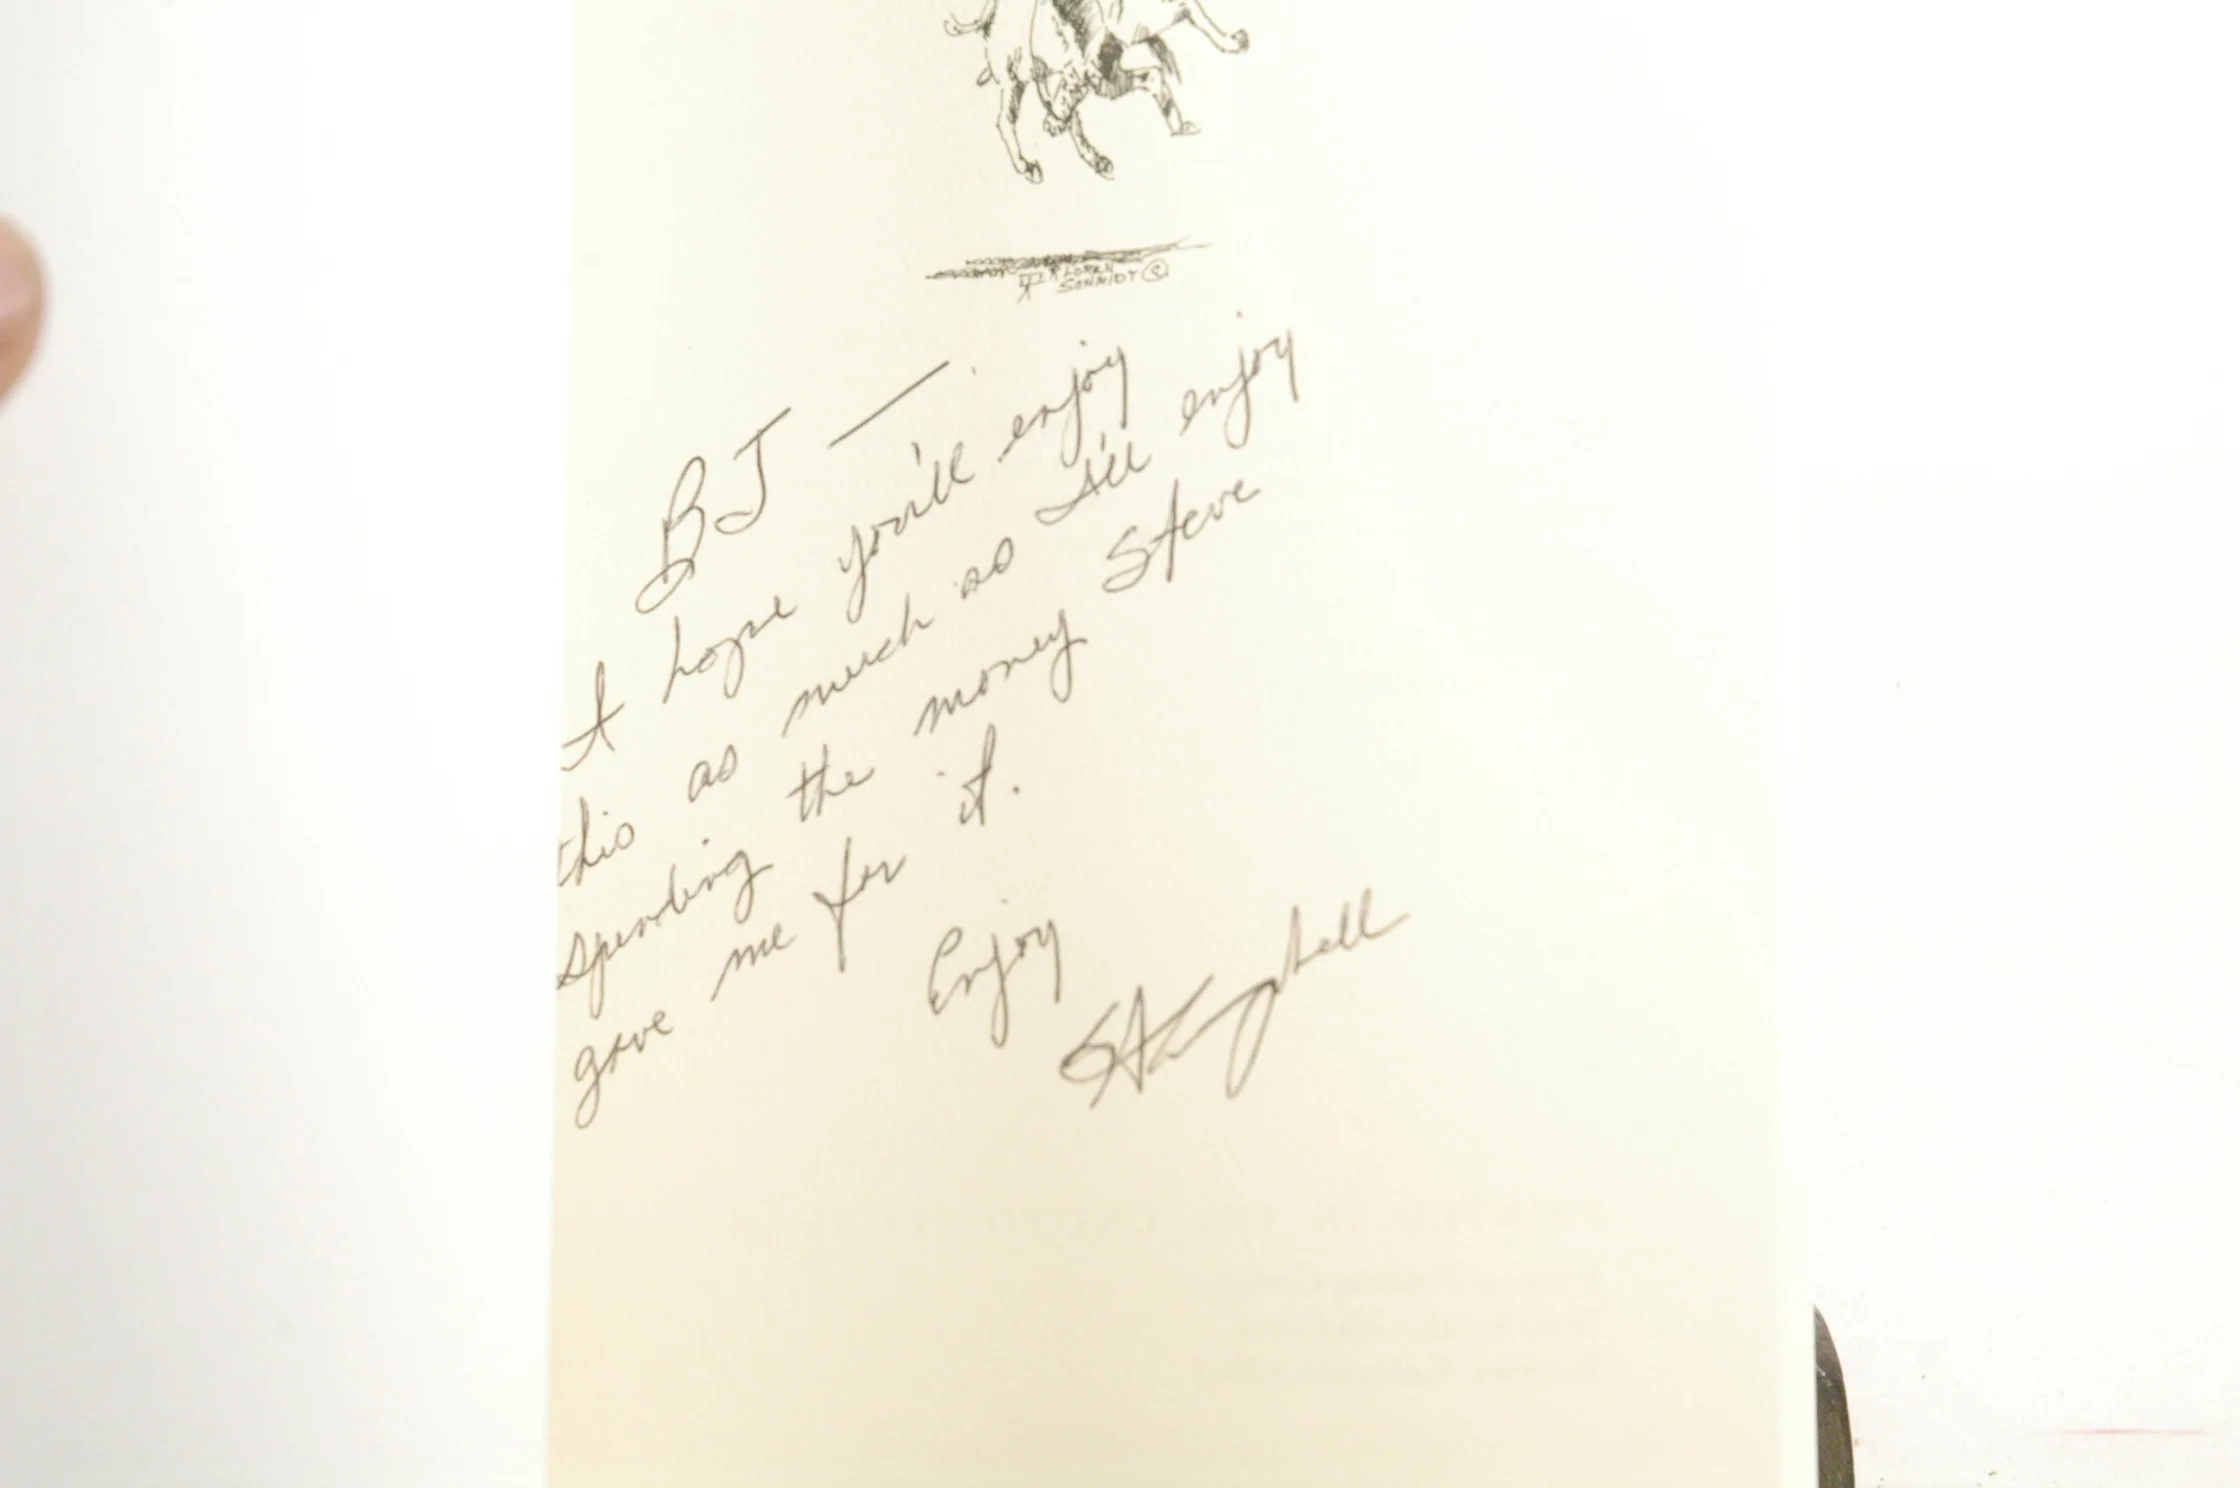 LOREN
SCHMIDT ©
BJ —
I hope you'll enjoy
this as much as I'll enjoy
spending the money Steve
gave me for it.
Enjoy